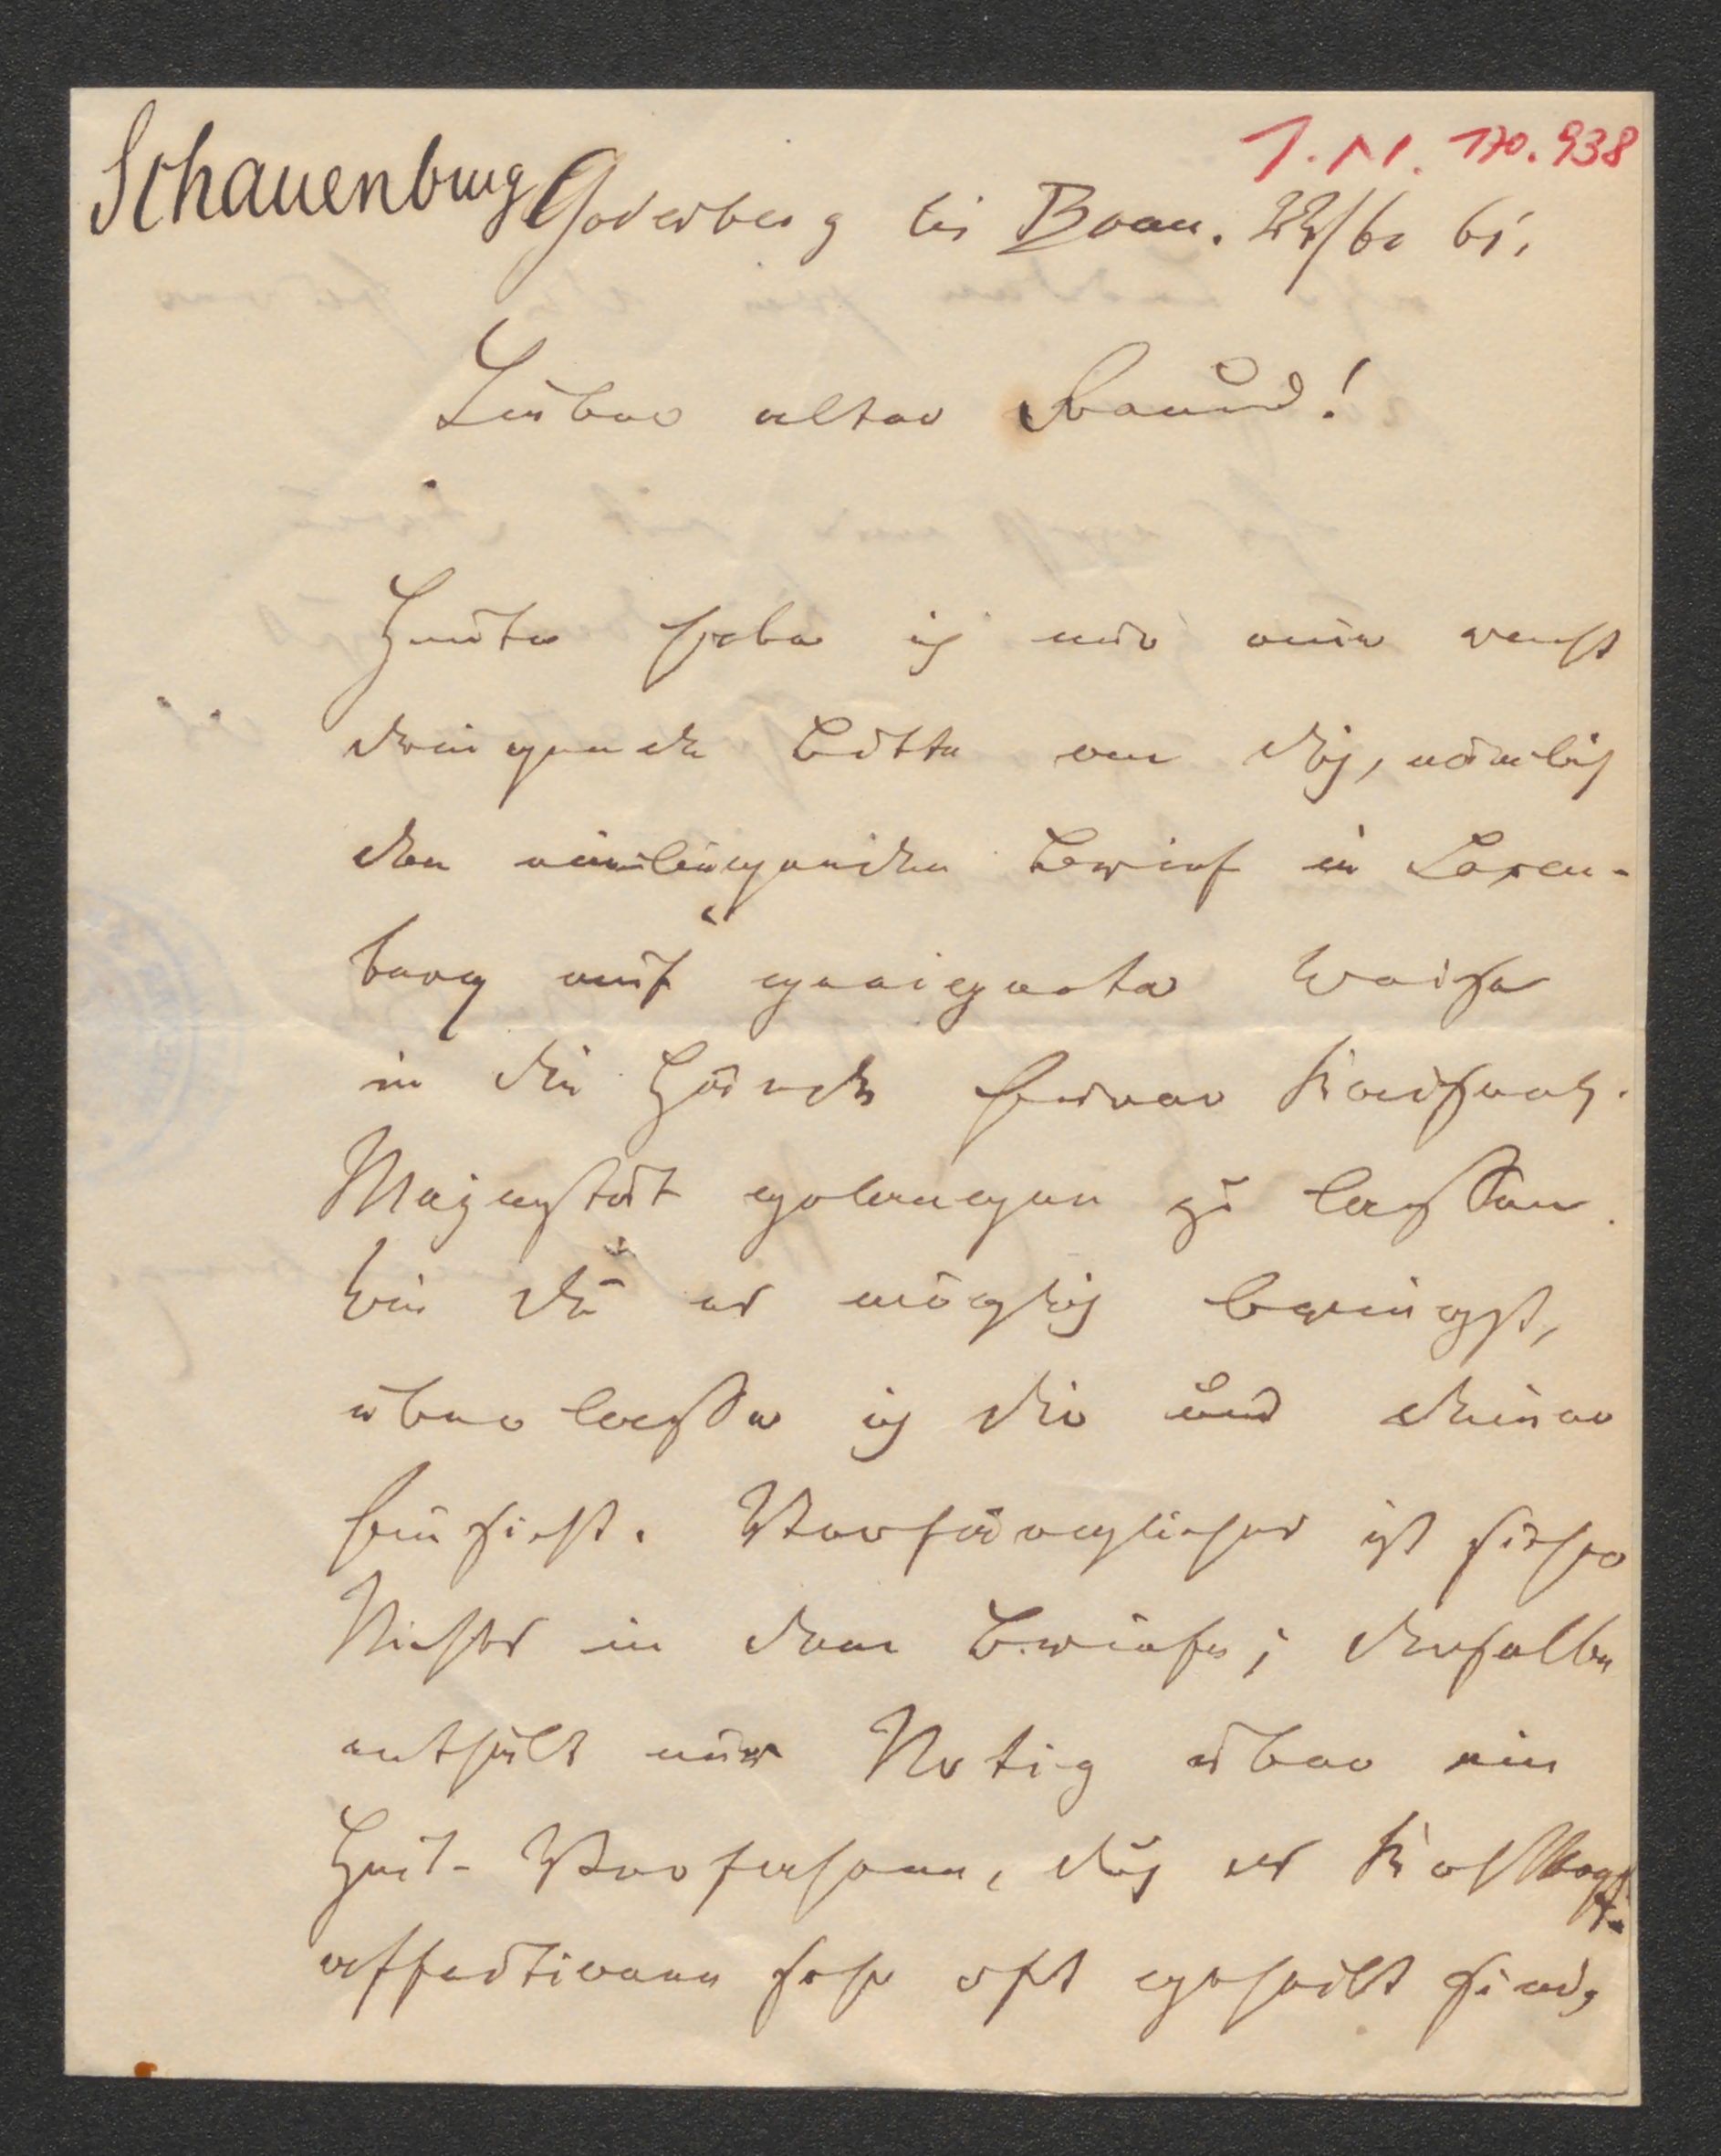 Schauenburg
I.N. 170.938
Godesberg bei Bonn. 22/6 61.
Lieber alter Freund!
Heute habe ich nur eine recht
dringende Bitte an dich, nämlich
den einliegenden Brief in Laxen-
burg auf geeignete Weise
in die Hände Kaiserl.
Majestät gelangen zu lassen.
Wie du es möglich bringst,
überlasse ich dir und deiner
Einsicht. Verfängliches ist sicher
Nichts in dem Briefe; derselbe
enthält nur Notiz über ein
Heil-Verfahren, durch
sehr oft geheilt sind,